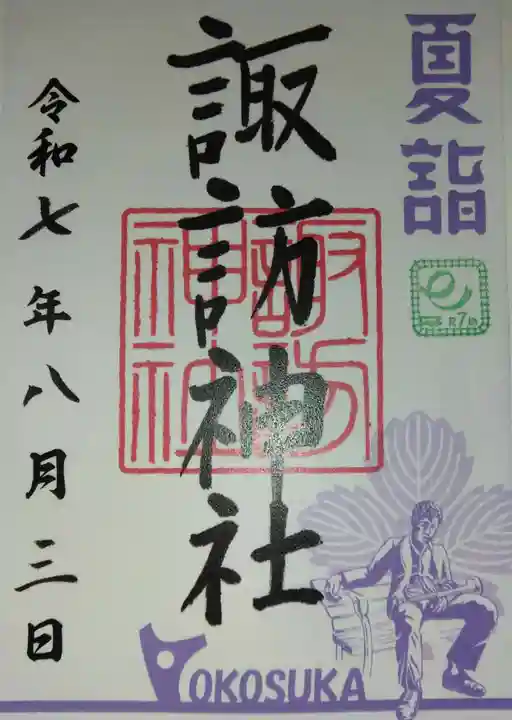 夏詣
R7
諏訪神社
諏訪
神社
令和七年八月三日
YOKOSUKA